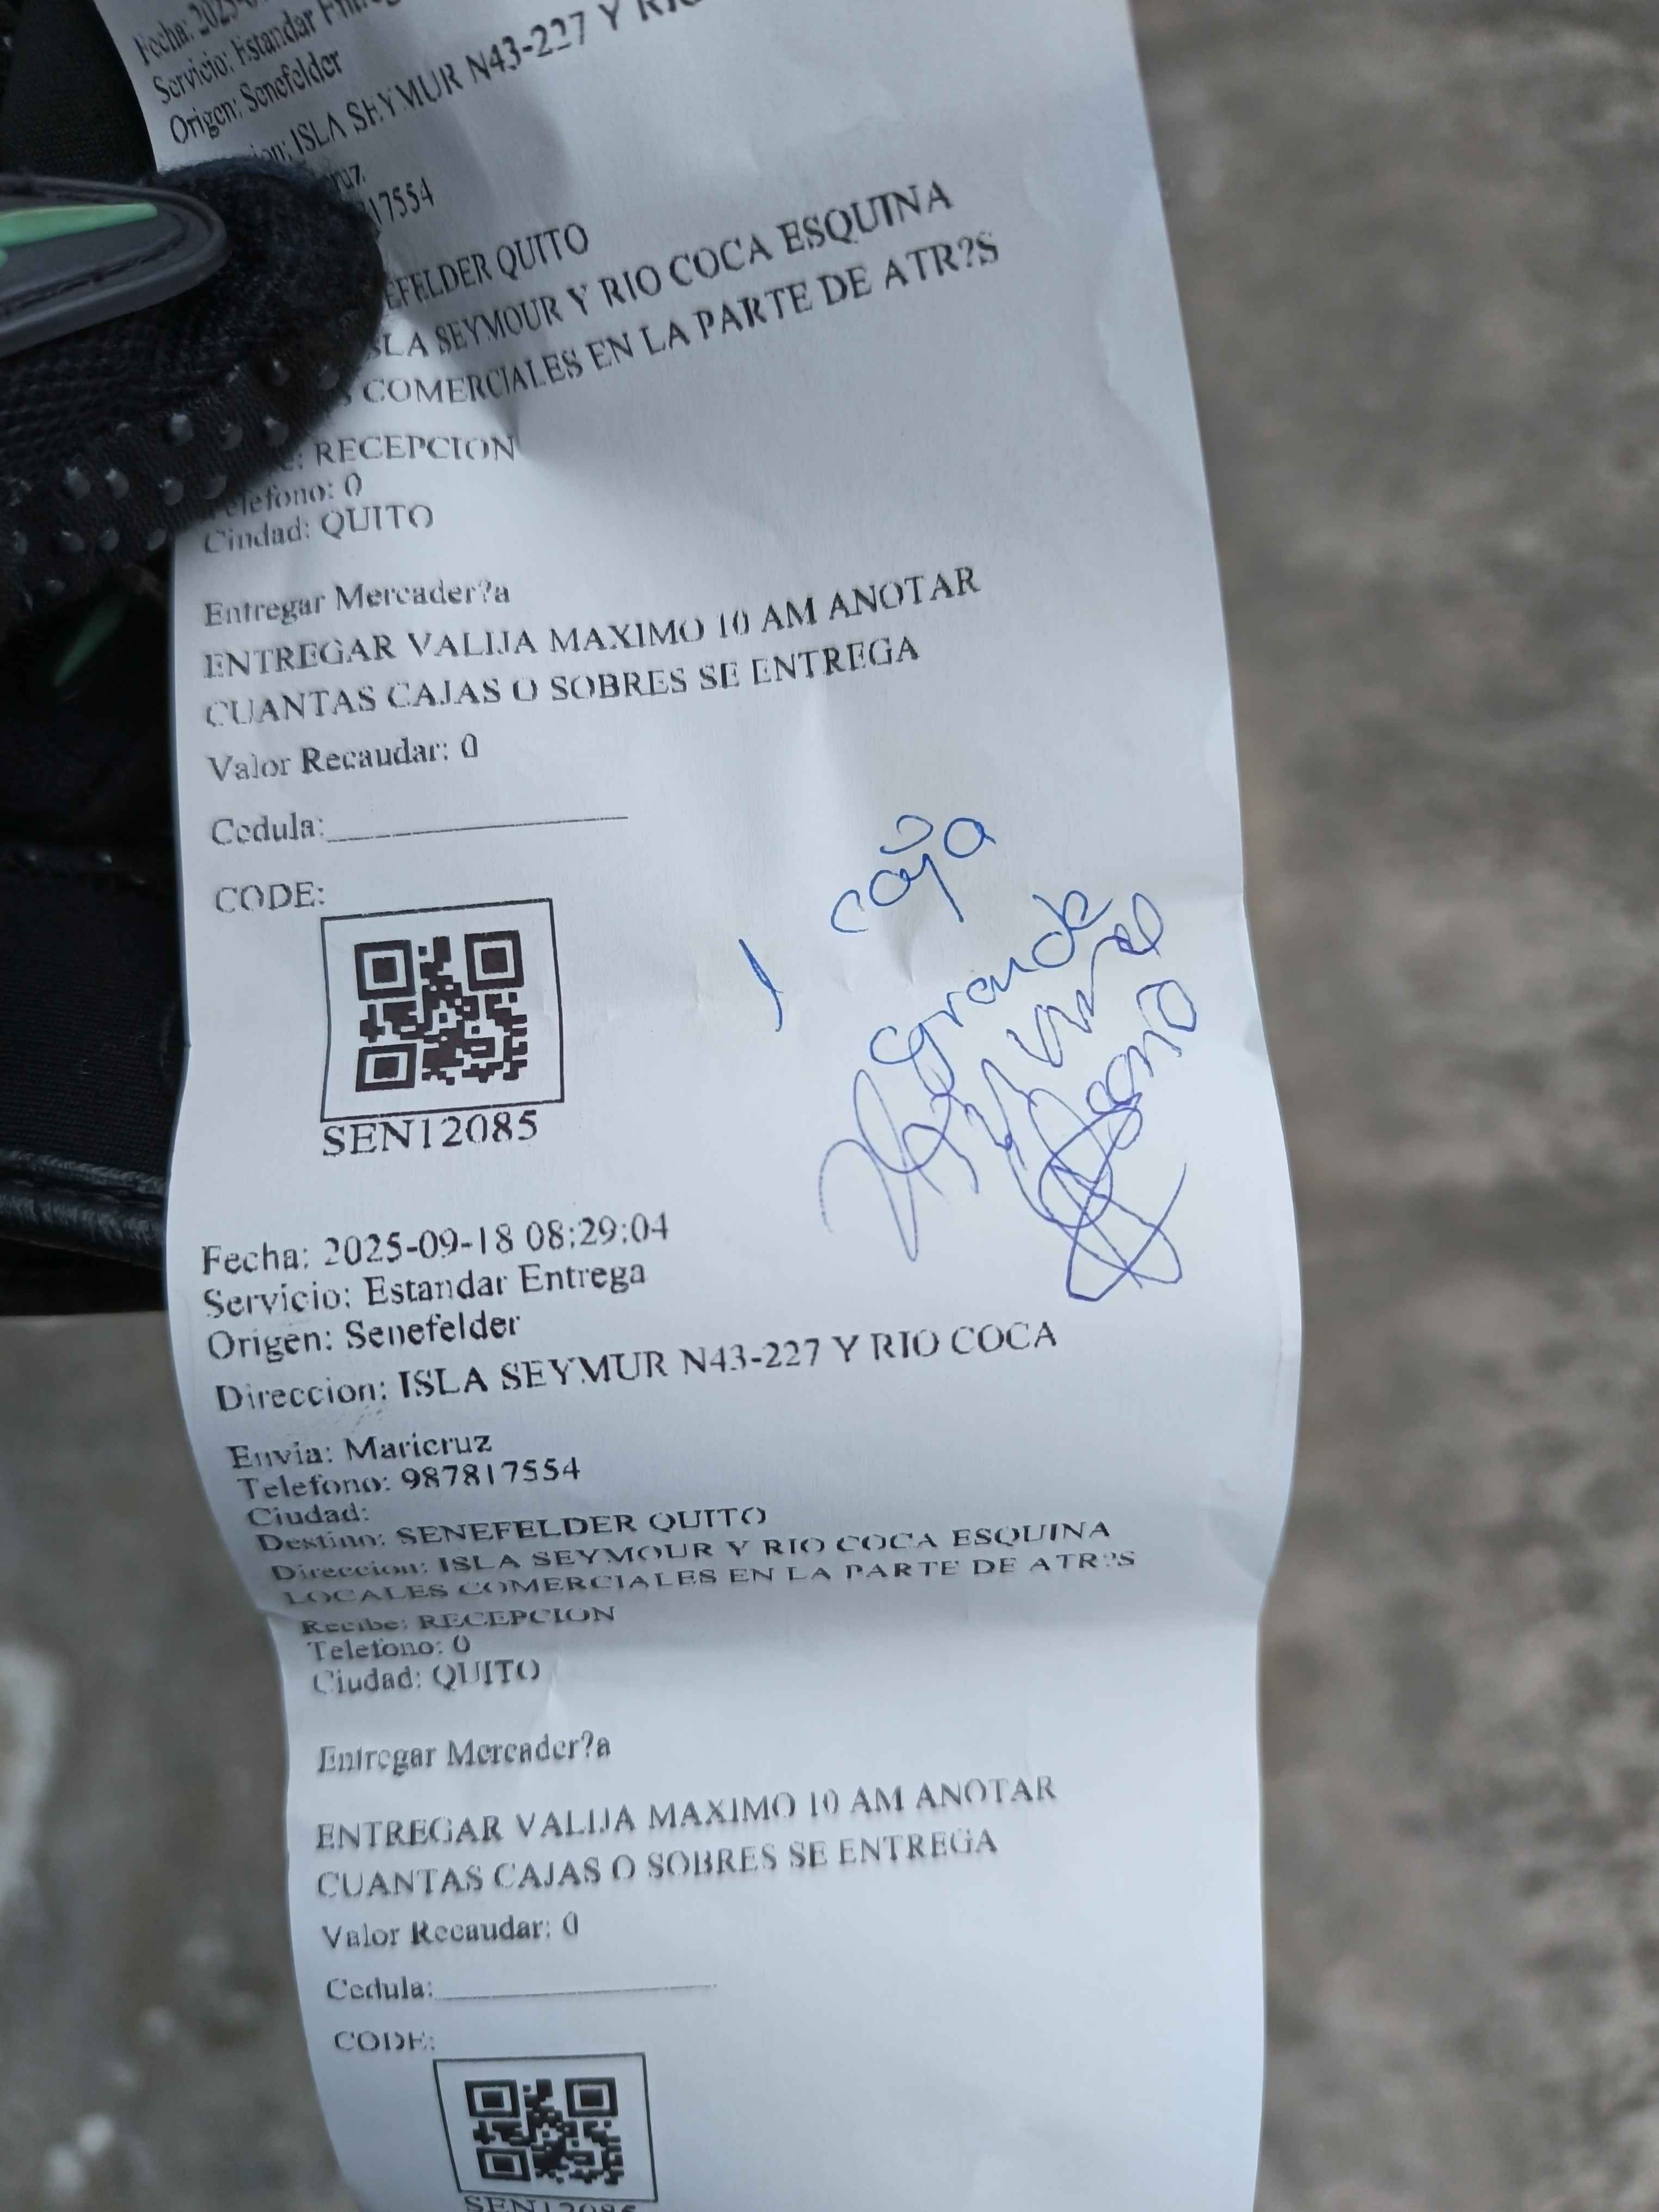 Servicio: Estandar
Origen: Senefelder
ISLA SEYMUR N43-227 Y
17554
QUITO
SEYMOUR Y RIO COCA ESQUINA
COMERCIALES EN LA PARTE DE ATR?S
RECEPCION
Telefono: 0
Ciudad: QUITO
Entregar Mercader?a
ENTREGAR VALIJA MAXIMO 10 AM ANOTAR
CUANTAS CAJAS O SOBRES SE ENTREGA
Valor Recaudar: 0
Cedula:
CODE:
1 caja
grande
SEN12085
Fecha: 2025-09-18 08:29:04
Servicio: Estandar Entrega
Origen: Senefelder
Direccion: ISLA SEYMUR N43-227 Y RIO COCA
Envia: Maricruz
Telefono: 987817554
Ciudad:
Destino: SENEFELDER QUITO
Direccion: ISLA SEYMOUR Y RIO COCA ESQUINA
LOCALES COMERCIALES EN LA PARTE DE ATR?S
Recibe: RECEPCION
Telefono: 0
Ciudad: QUITO
Entregar Mercader?a
ENTREGAR VALIJA MAXIMO 10 AM ANOTAR
CUANTAS CAJAS O SOBRES SE ENTREGA
Valor Recaudar: 0
Cedula:
CODE:
SEN12085